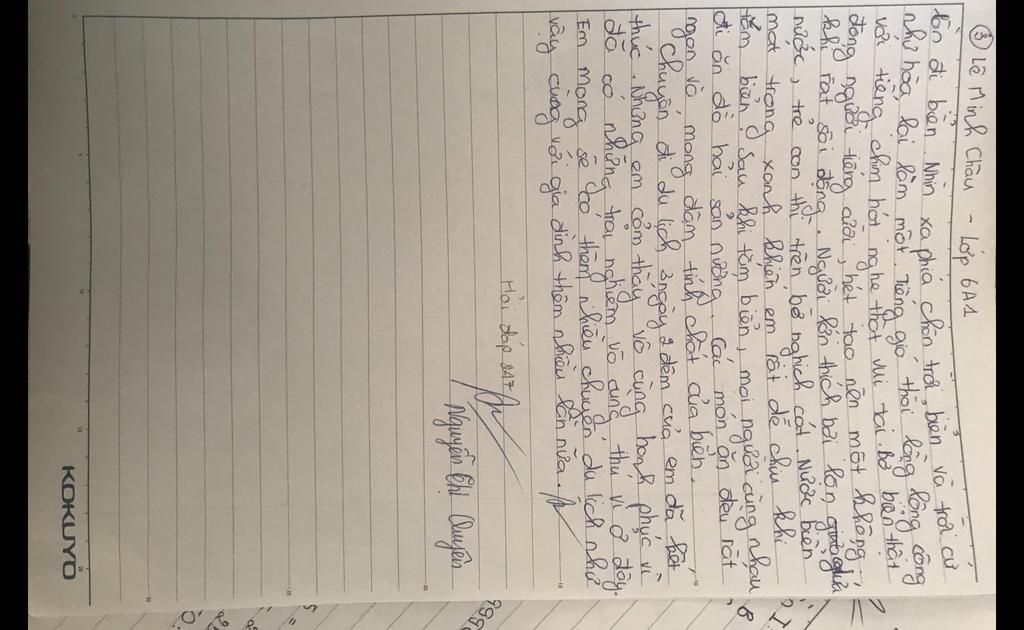 ③ Lê Minh Châu - Lớp 6A1
lần đi biển. Nhìn xa phía chân trời, biển và trời cứ
như hòa lại làm một. Tiếng gió thổi lồng lộng cộng
với tiếng chim hót nghe thật vui tai. Bờ biển thật
đông người, tiếng cười, hét tạo nên một không
khí rất sôi động. Người lớn thích bơi lặn giữa
nước, trẻ con thì trên bờ nghịch cát. Nước biển
mát trong xanh khiến em rất dễ chịu khi
tắm biển. Sau khi tắm biển, mọi người cùng nhau
đi ăn đồ hải sản nướng. Các món ăn đều rất
ngon và mang đậm tính chất của biển.
Chuyến đi du lịch 3 ngày 2 đêm của em đã kết
thúc. Nhưng em cảm thấy vô cùng hạnh phúc vì
đã có những trải nghiệm vô cùng thú vị ở đây.
Em mong sẽ có thêm nhiều chuyến du lịch như
vậy cùng với gia đình thêm nhiều lần nữa.
Hỏi đáp 247
Nguyễn Thị Quyên
KOKUYO